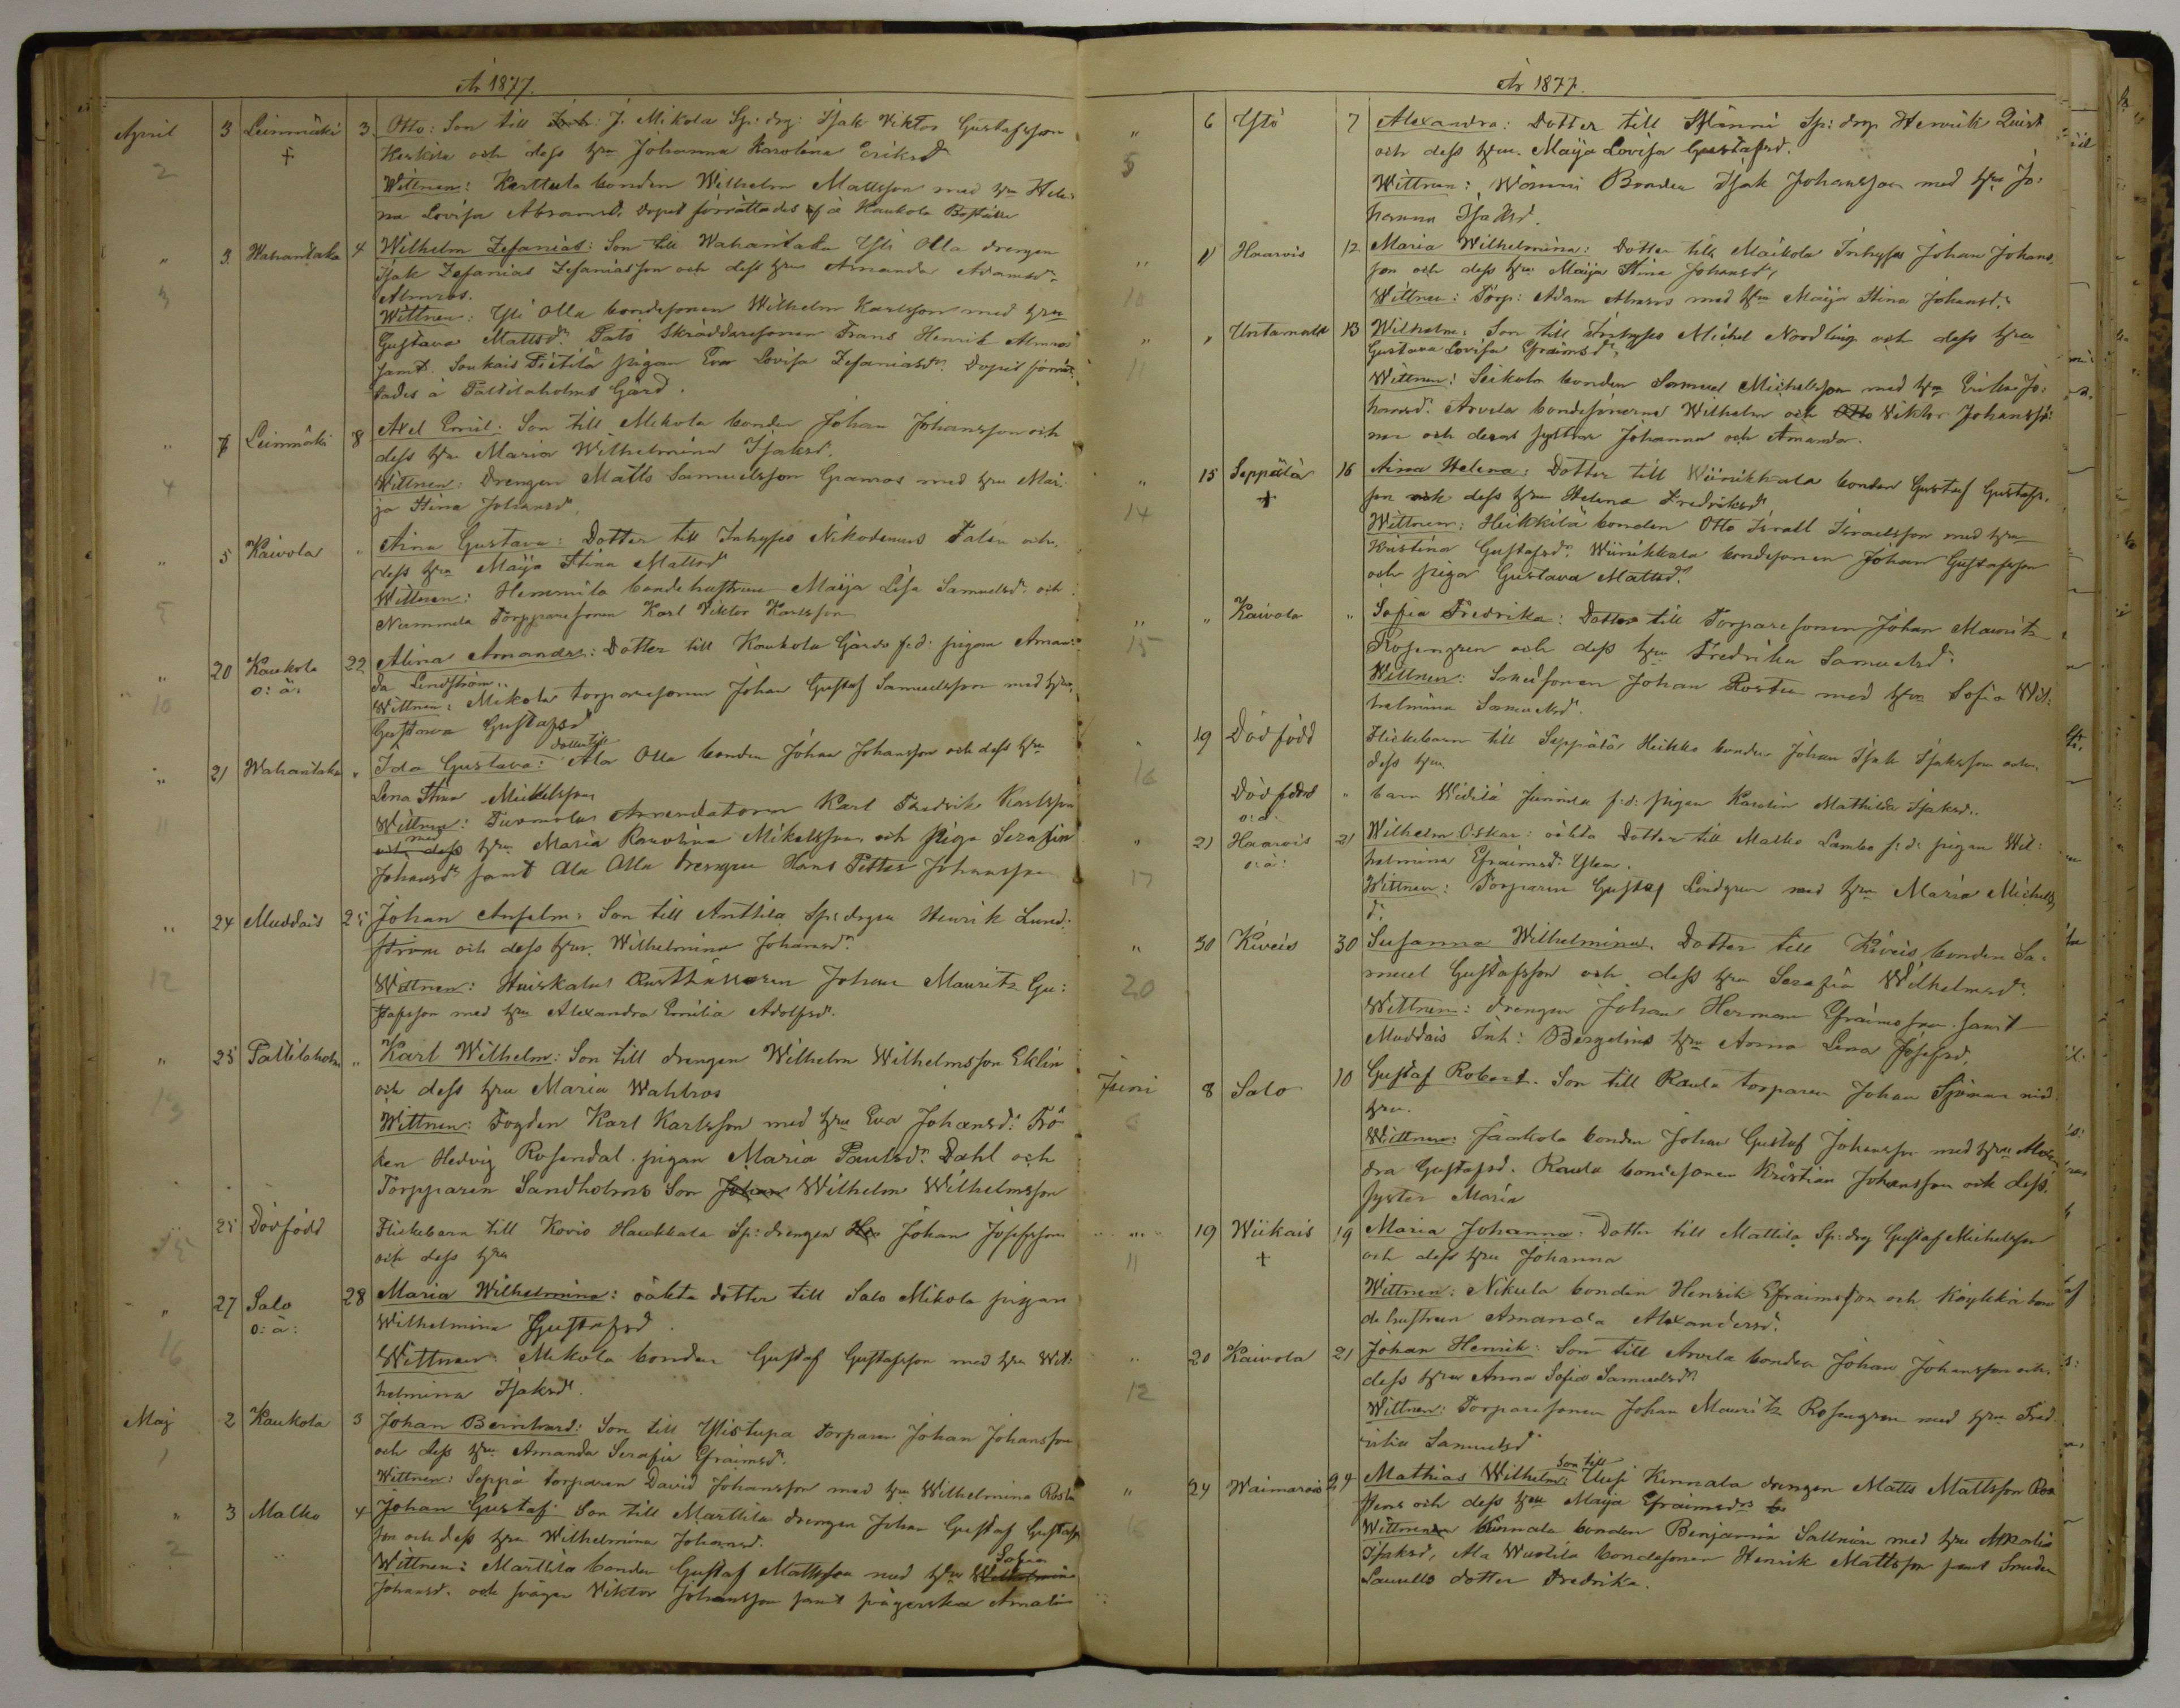 År 1877.
April 3 Leinmäki 3 Otto: Son till J. Mikola Sp: drg: Isak Viktor Gustafsson
2 + Keskila och dess hru Johanna Karolina Eriksd
Wittnen: Karttula bonden Wilhelm Mattsson med hru Hele:
na Lovisa Abramsd. Dopet förrättades på Kaukola Boställe
" 3 Wahantaka 4 Wilhelm Zefanias: Son till Wahantaka Yli Olla drengen
3 Isak Zefanias Zefaniasson och dess hru Amanda Adamsdr
Almros.
Wittnen: Yli Olla bondesonen Wilhelm Karlsson med hru
Gustava Mattsdr. Pato Skräddaresonen Frans Henrik Almros
samt Soukais Tietilä pigan Eva Lovisa Zefaniasdr. Dopet förrät:
tades å Palttilaholms Gård.
" 7 Leinmäki 8 Axel Emil: Son till Mikola bonden Johan Johansson och
dess hru Maria Wilhelmina Isaksd.
4 Wittnen: Drengen Matts Samuelsson Granros med hru Mai:
ja Stina Johansd.
" 5 Kaivola " Aina Gustava: Dotter till Inhyses Nikodemus Falén och
dess hru Maija Stina Mattsd
5 Wittnen: Hemmila bondehustrun Maija Lisa Samuelsd. och
Nummela Torpparesonen Karl Viktor Karlsson
" 20 Kaukola 22 Alina Amanda: Dotter till Kaukola Gårds f.d. pigan Aman:
o: ä: da Lindström..
10 Wittnen: Mikola torparesonen Johan Gustaf Samuelsson med hru
Gustava Gustafsd
dotter till
" 21 Wahantaka " Ida Gustava: Ala Olla bonden Johan Johansson och dess hru
Lena Stina Mickelsson
11 Wittnen: Arrendatorn Karl Fredrik Karlsson
med
och dess hru Maria Karolina Mikelsson och Piga Serafia
Johansdr samt Ala Olla drengen Hans Petter Johansson
" 24 Muddais 25 Johan Anselm: Son till Anttila Sp: drgen Henrik Lund:
ström och dess hru Wilhelmina Johansdr
12 Wittnen: Huiskalus Rusthållaren Johan Mauritz Gu:
stafsson med hru Alexandra Emilia Adolfsd.
" 25 Palttilaholm " Karl Wilhelm: Son till drengen Wilhelm Wilhelmsson Eklin
och dess hru Maria Wahlros
13 Wittnen: Fogden Karl Karlsson med hru Eva Johansd: Frö
ken Hedvig Rosendal. pigan Maria Paulsdr. Dahl och
Torpparen Sandholms Son Johan Wilhelm Wilhelmsson
" 25 Dödfödd Flickebarn till Kovio Haukkala Sp: drengen Johan Josefsson
och dess hru
" 27 Salo 28 Maria Wilhelmina: oäkta dotter till Salo Mikola pigan
o: ä: Wilhelmina Gustafsd.
16 Wittnen: Mikola bonden Gustaf Gustafsson med hru Wil:
helmina Isaksd.
Maj 2 Kaukola 3 Johan Bernhard: Son till Ylistupa torparen Johan Johansson
1 och dess hru Amanda Serafia Efraimsd.
Wittnen: Seppä torparen David Johansson med hru Wilhelmina
" 3 Malko 4 Johan Gustaf: Son till Marttila drengen Johan Gustaf Gustafs
2 son och dess hru Wilhelmina Johansd.
Sofia
Wittnen: Marttila bonden Gustaf Mattsson med hru Wilhelmina
Johansd. och svåger Viktor Johansson samt svägerska Amalia
År 1877.
" 6 Ylö 7 Alexandra: Dotter till Männi Sp: drgn Henrik Quist
5 och dess hru. Maija Lovisa Gustafsd.
Wittnen: Wänni Bonden Isak Johansson med hru Jo:
hanna Isaksd.
" 11 Haarois 12 Maria Wilhelmina: Dotter till Maikola Inhyses Johan Johans
son och dess hru Maija Stina Johansd,
10 Wittnen: Torp: Adam Almros med hru Maija Stina Johansd.
" " Untamala 13 Wilhelm: Son till Inhyses Michel Nordling och dess hru
Gustava Lovisa Efraimsd,
11 Wittnen: Seikola bonden Samuel Michelsson med hru Erika Jo:
hansd. Arvela bondesönerna Wilhelm och Otto Viktor Johansso:
ner och deras systrar Johanna och Amanda.
" 15 Seppälä 16 Aina Helena: Dotter till Wiinikkala bonden Gustaf Gustafs.
+ son och dess hru Helena Fredriksd
14 Wittnen: Heikkilä bonden Otto Israel Israelsson med hru
Kristina Gustafsd. Wiinikkala bondesonen Johan Gustafsson
och pigan Gustava Mattsd.
" " Kaivola " Sofia Fredrika: Dotter till Torparesonen Johan Mauritz
15 Rosengren och dess hru Fredrika Samuelsd.
Wittnen: Smedsonen Johan Rostén med hru Sofia Wil:
helmina Samuelsd.
" 19 Dödfödd Flickebarn till Seppälä Heikka bonden Johan Isak Isaksson och
16 dess hru.
Dödfödd " barn Widilä Junnila f:d: pigan Karolin Mathilda Isaksd..
o: ä.
" 21 Haarois 21 Wilhelm Oskar: oäkta Dotter till Malko Lambo f:d: pigan Wil:
o: ä: helmina Efraimsd.
17 Wittnen: Torparen Gustaf Lindgren med hru Maria Michels
d.
" 30 Kiveis 30 Susanna Wilhelmina. Dotter till Kiveis bonden Sa:
muel Gustafsson och dess hru Serafia Wilhelmsd.
20 Wittnen: drengen Johan Herman Efraimsson samt
Muddais Inh: Bergelins hru Anna Lena Josefsd.
Juni 8 Salo 10 Gustaf Robert. Son till Raula torparen Johan Sjöman med
hru.
8 Wittnen: Jaakola bonden Johan Gustaf Johansson med hru
dra Gustafsd. Raula bondesonen Kristian Johansson och dess
syster Maria
" 19 Wiikais 19 Maria Johanna: Dotter till Mattila Sp: drg Gustaf Michelsson
11 + och dess hru Johanna
Wittnen: Nikula bonden Henrik Efraimsson och Köykkä bon
dehustrun Amanda Alexandersd.
" 20 Kaivola 21 Johan Henrik: Son till Arvela bonden Johan Johansson och
dess hru Anna Sofia Samuelsd
12 Wittnen: Torparesonen Johan Mauritz Rosengren med hru Fred
rika Samuelsd
son till
" 24 Waimarois 24 Mathias Wilhelm: Uusi Kinnala drengen Matts Mattsson
stens och dess hru Maija Efraimsdr
16 Wittnen Kinnala bonden Benjamin Sallnién med hru Amalia
Isaksd, Ala Wustila bondesonen Henrik Mattsson samt Smeden
Saurells dotter Fredrika.